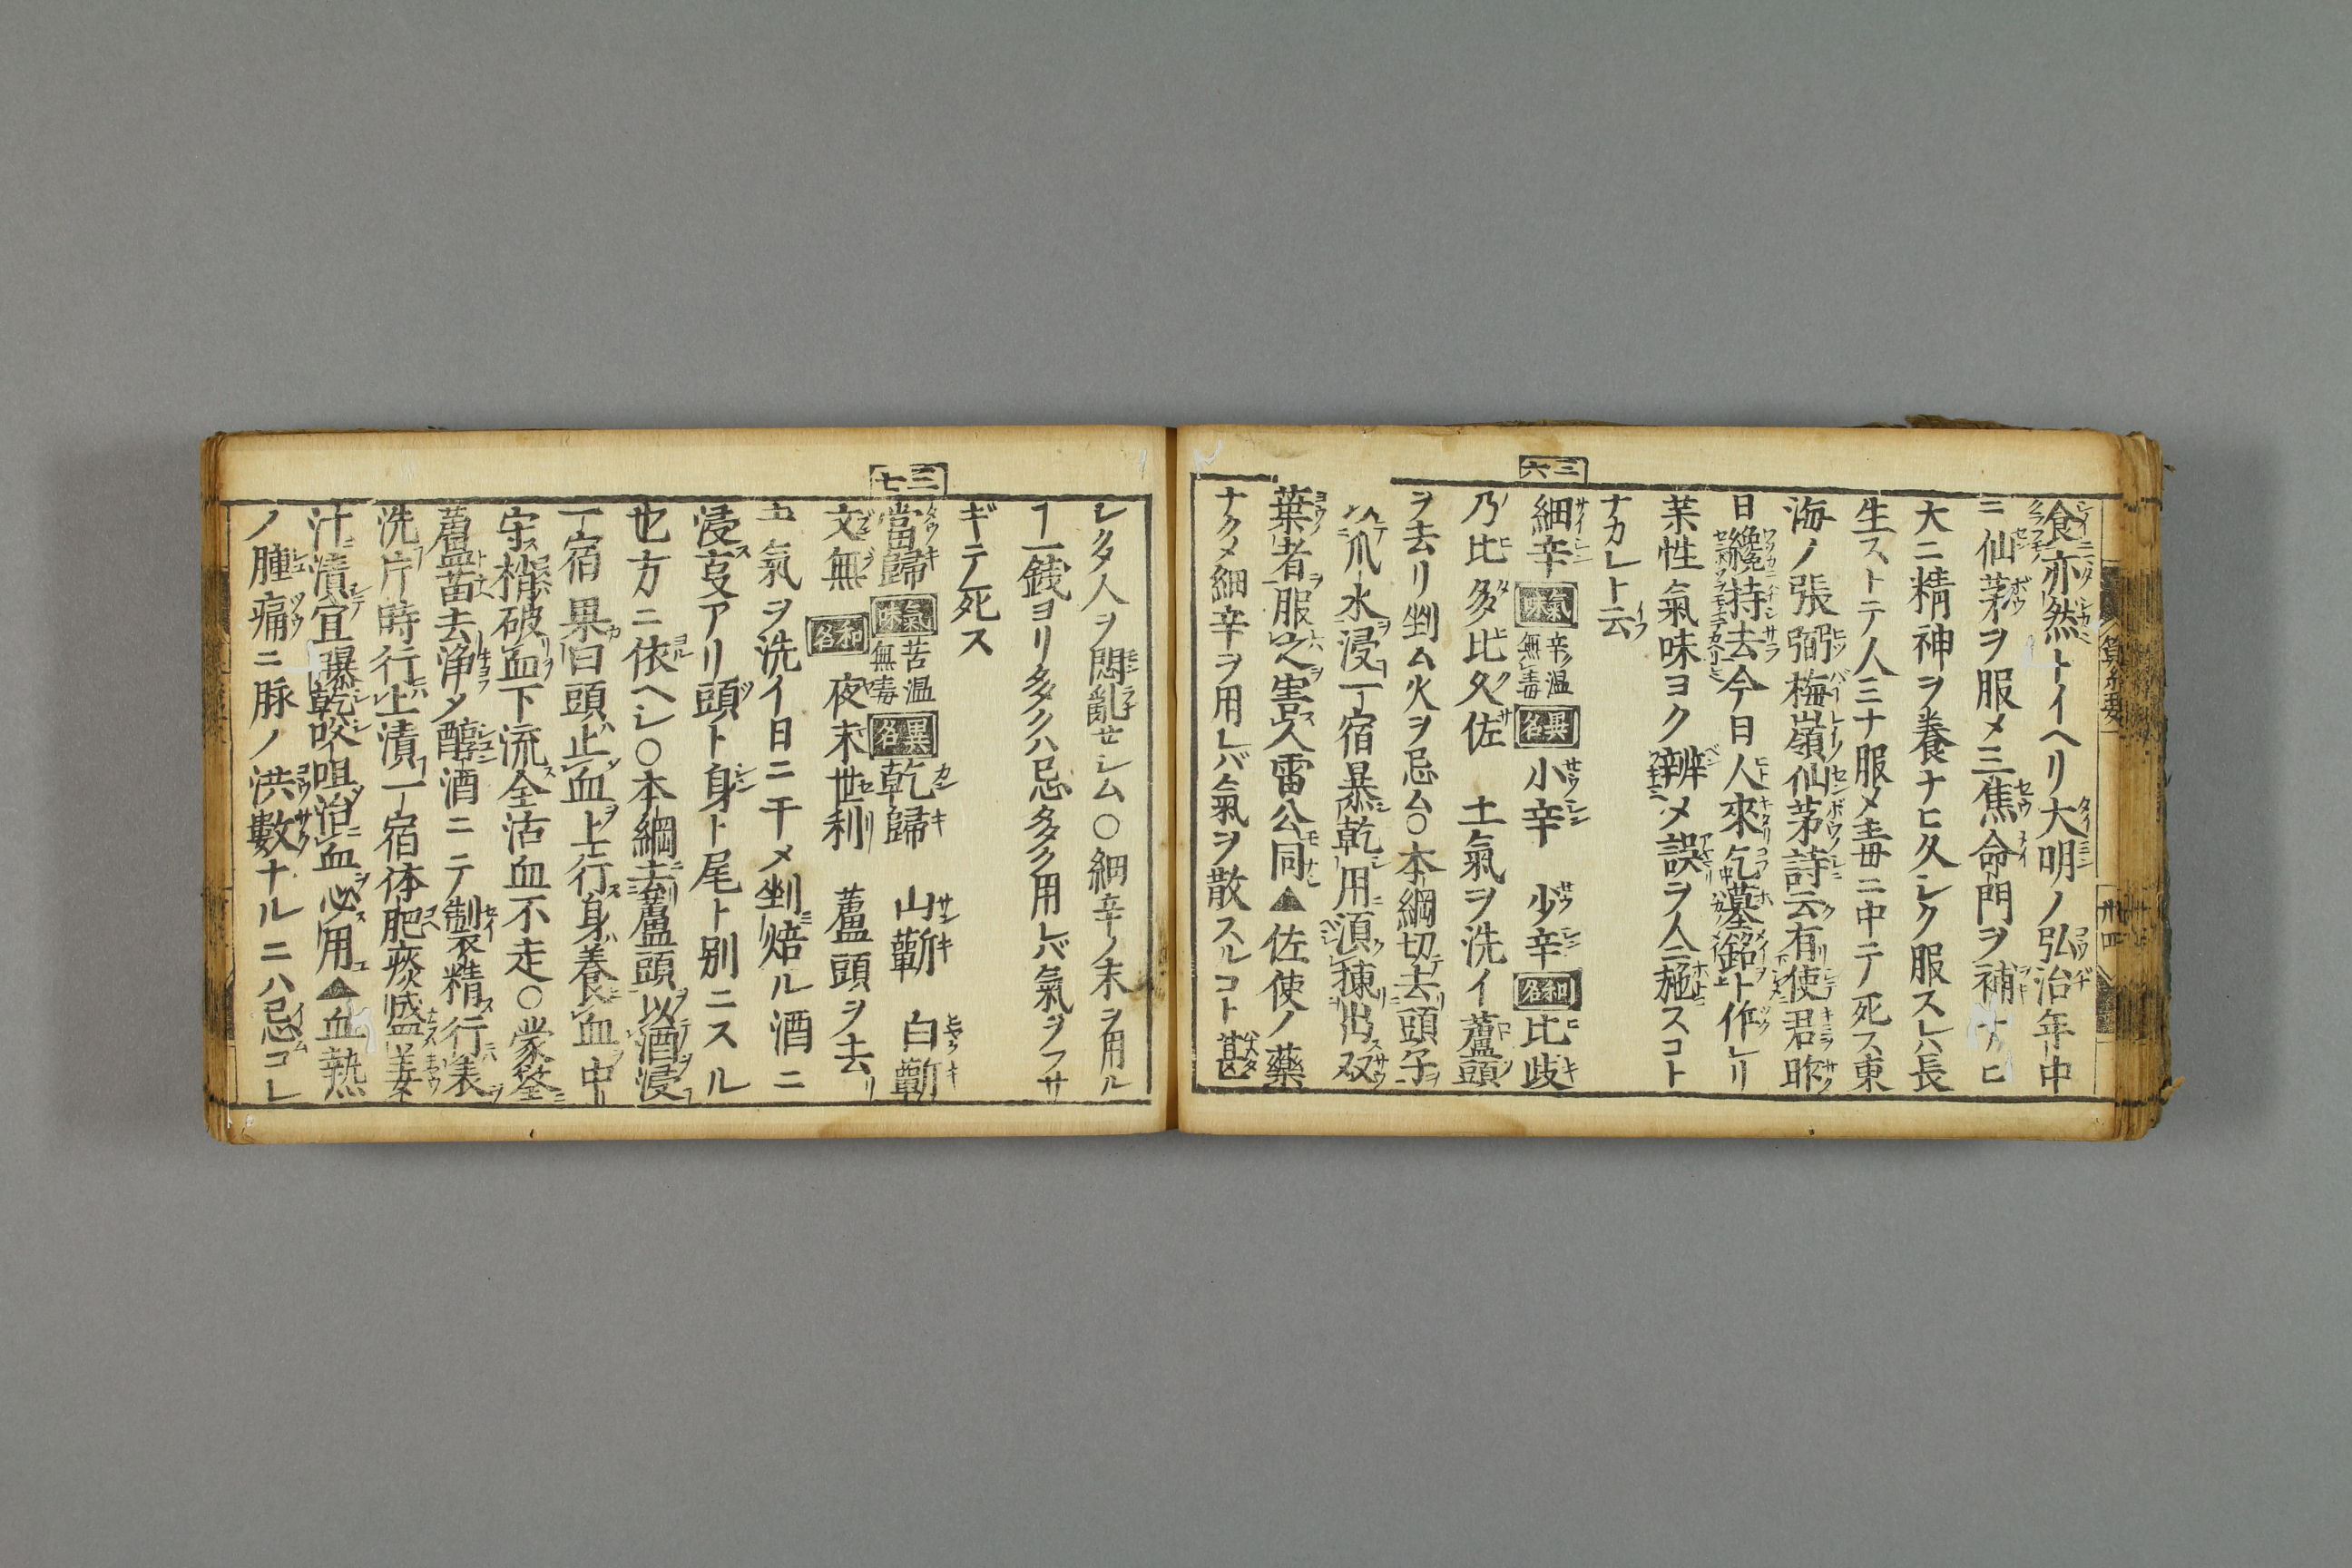 食亦然トイヘリ大明ノ弘治年中
ニ仙茅ヲ服メ三焦命門ヲ補ナヒ
大ニ精神ヲ養ナヒ久シク服スレハ長
生ストテ人ミナ服メ毒ニ中テ死ス東
海ノ張弼梅嶺仙茅詩云有使君昨
日纔持去今日人來乞墓銘ト作レリ
茉性氣味ヨク辨メ誤ヲ人ニ施スコト
ナカレト云
三六
細辛 氣味 辛温無毒 異名 小辛 少辛 和名 比岐
乃比多比久佐 土氣ヲ洗イ蘆頭
ヲ去リ剉ム火ヲ忌ム○本綱切去頭子ヲ
以爪水浸一宿暴乾用須揀出双
葉者服之害人雷公同▲佐使ノ藥
ナクメ細辛ヲ用レバ氣ヲ散スルコト甚
シ多人ヲ悶亂セシム○細辛ノ末ヲ用ル
ヿ一錢ヨリ多クハ忌多ク用レバ氣ヲフサ
ギテ死ス
三七
當歸 氣味 苦温無毒 異名 乾歸 山蘄 白蘄
文無 和名 夜末世利 蘆頭ヲ去リ
土氣ヲ洗イ日ニ干メ剉焙ル酒ニ
浸叓アリ頭ト身ト尾ト别ニスル
也方ニ依ヘシ○本綱去蘆頭以酒浸
一宿杲曰頭止血上行身養血中
守梢破血下流全活血不走○蒙筌
蘆苗去浄メ醇酒ニテ製精行表
洗片時行上漬一宿体肥痰盛姜
汁漬宜曝乾㕮咀治血必用▲血熱
ノ腫痛ニ脉ノ洪數ナルニハ忌コレ